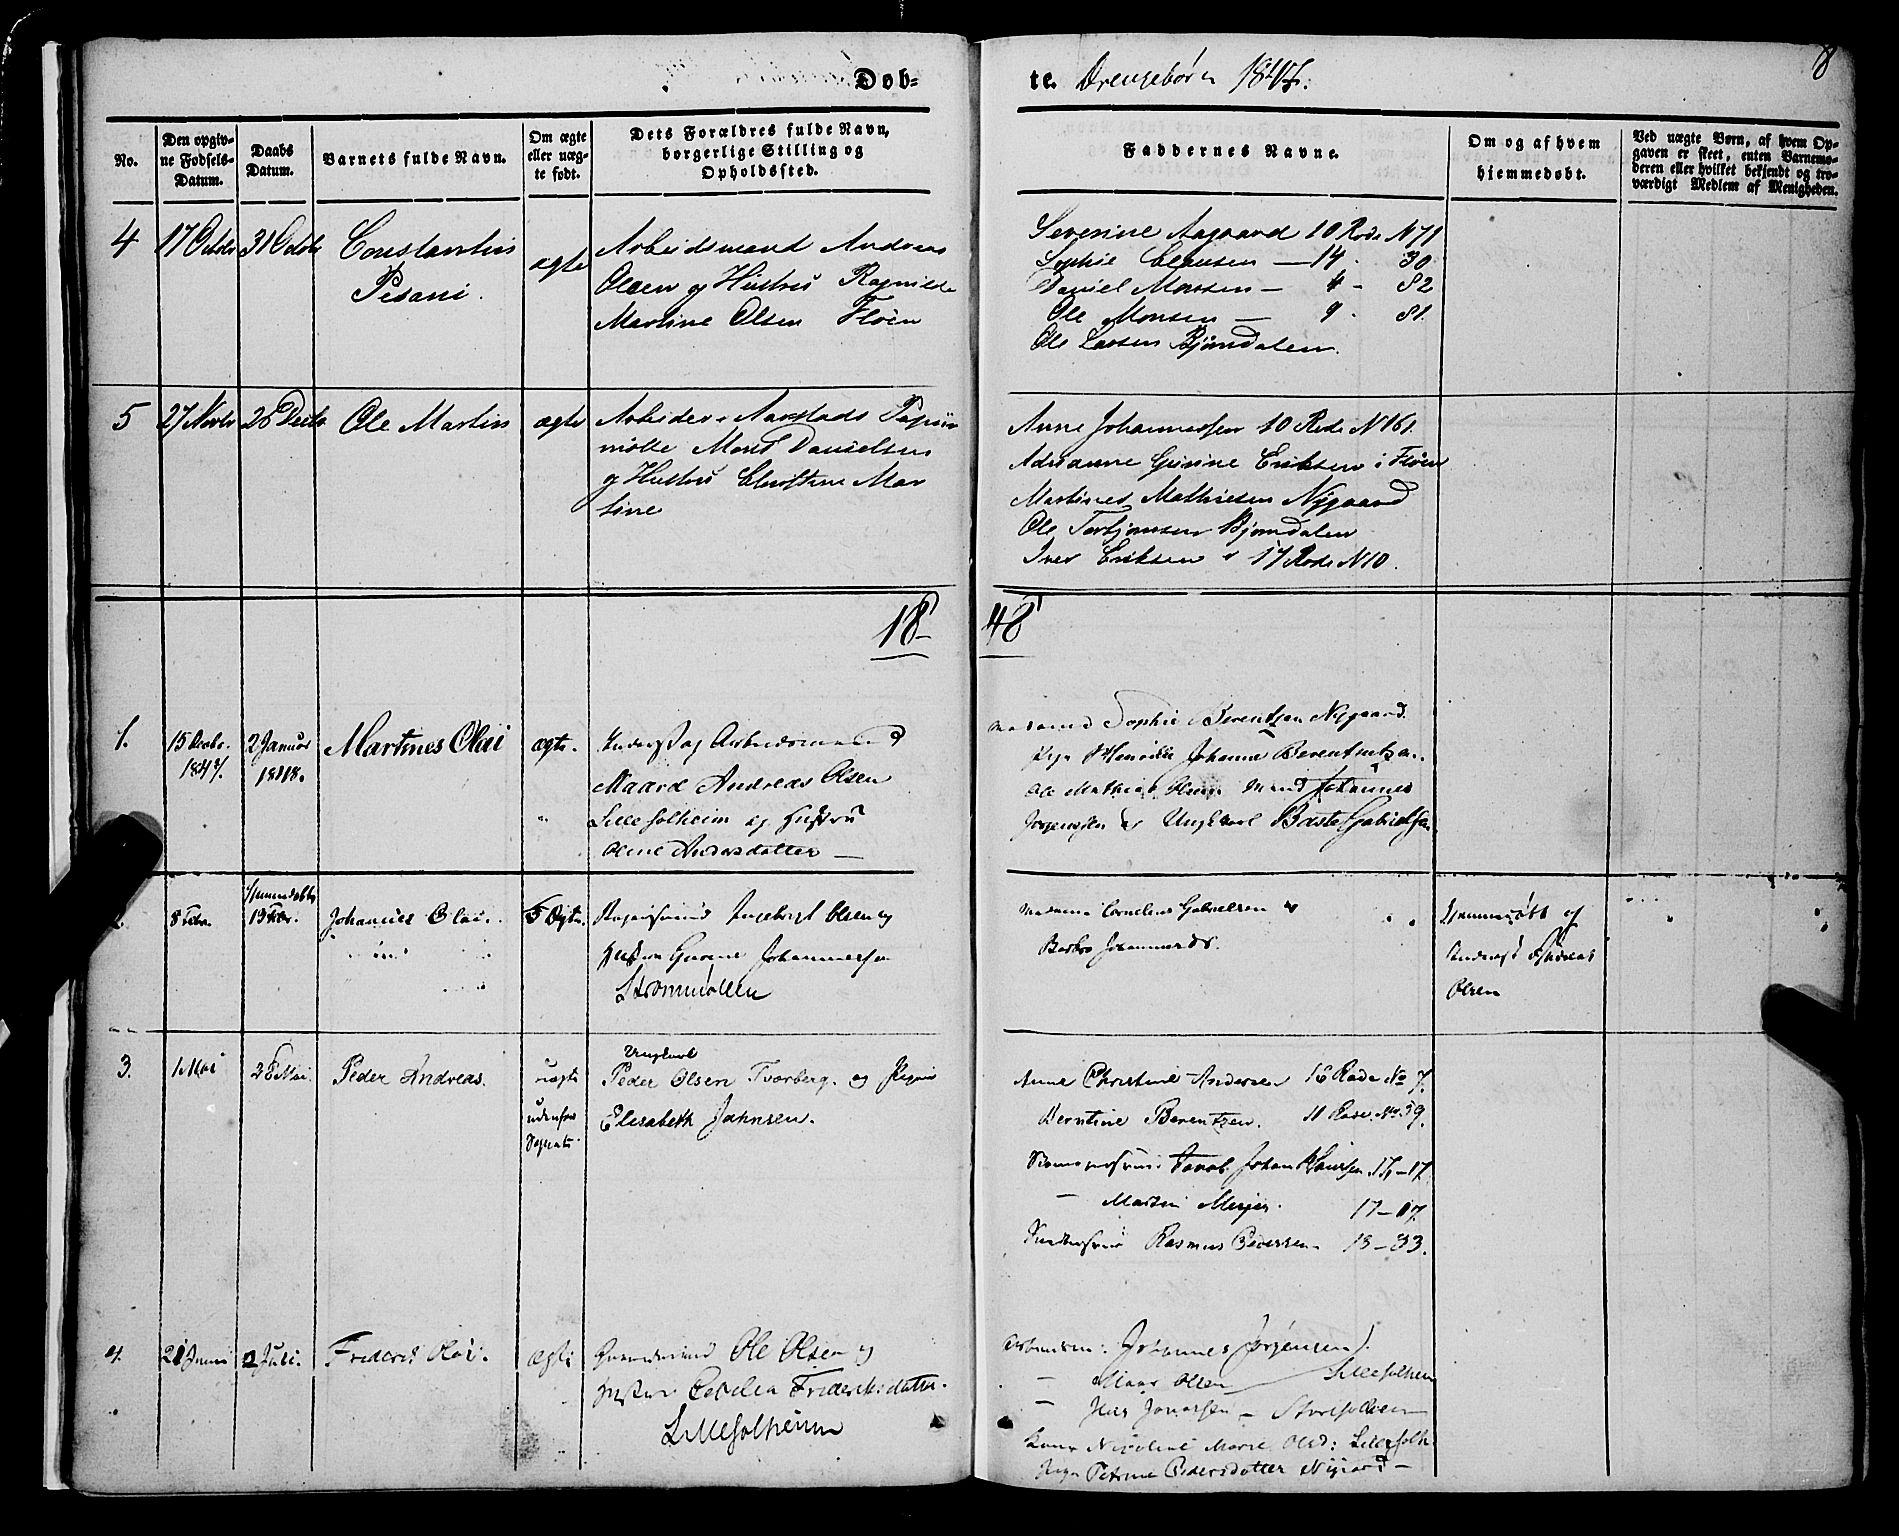 18
Døb-
te. Drengebørn 1847.
No.
Den opgiv-
ne Fødsels-
Datum.
Daabs
Datum.
Barnets fulde Navn.
Om ægte
eller uæg-
te født.
Dets Forældres fulde Navn,
borgerlige Stilling og
Opholdssted.
Faddernes Navne.
Om og af hvem
hjemmedøbt.
Ved uægte Børn, af hvem Op-
gaven er skeet, enten Barnemo-
deren eller hvilket bekjendt og tro-
værdigt Medlem af Menigheden.
4
17 Octbr
31 Octbr
Constantin
Pesani
ægte
Arbeidsmand Andreas
Olsen og Hustru Ragnilde
Martine Olsen Fløen
Severine Aagaard 10 Rode N 71
Sophie Clausen — 14 - 30
Daniel Monsen — 4 - 82
Ole Monsen — 9 - 81.
Ole Larsen Bjørndalen.
5
27 Novbr
26 Decbr
Ole Martin
ægte
Arbeider v Aarstads Papiir
mølle Mons Danielsen
og Hustru Christine Mar
tine
Anne Johannessen 10 Rode N 161.
Adrianne Gurine Eriksen i Fløen
Martines Mathiesen Nygaard
Ole Torbjørnsen Bjørndalen
Iver Eriksen 17 Rode N 10.
18-
48
1.
15 Decbr.
1847.
2 Januar
1848.
Martines Olai
ægte.
Arbeidsmand
Maard Andreas Olsen
Lillesolheim og Hustru
Oline Andersdatter —
Madame Sophie Berentsen Nygaard.
Pige Henrikke Johanne Berentsen.
Ole Mathias Olsen Mand Johannes
Jørgensen og Ungkarl Baste Gabrielsen
2.
8 Febr.
hjemmedøbt
13 Febr.
Johannes Olai.
Ægte.
Ingebrigt Olsen og
Hustru Gurine Johannessen
Strømmøllen
Madame Cornelius Gabrielsen og
Barbro Johannesdr.
Hjemmedøbt af
Andreas
Olsen
3.
1 Mai
28 Mai.
Peder Andreas.
uægte
udenfor
Ungkarl
Peder Olsen Tvarberg. og Pigen
Elisabeth Johnsen.
Anne Christine Andersen 16 Rode No 7.
Berntine Berentzen. 11 Rode. No. 39.
Jacob Johan 15-17.
— Martin Meyer. 17-17.
Rasmus Pedersen 13-33.
4.
21 Juni
2 Juli.
Frederik Olai.
ægte
Ole Olsen og
Hustru Cecilia Frederiksdatter.
Lillesolheim
Arbeidsm: Johannes Jørgensen
— Olsen — Lillesolheim
— Jonassen — Storesolheim
Kone Nicoline Marie Olsd: Lillesolh.
Pige Petrine Pedersdatter Nygaard —